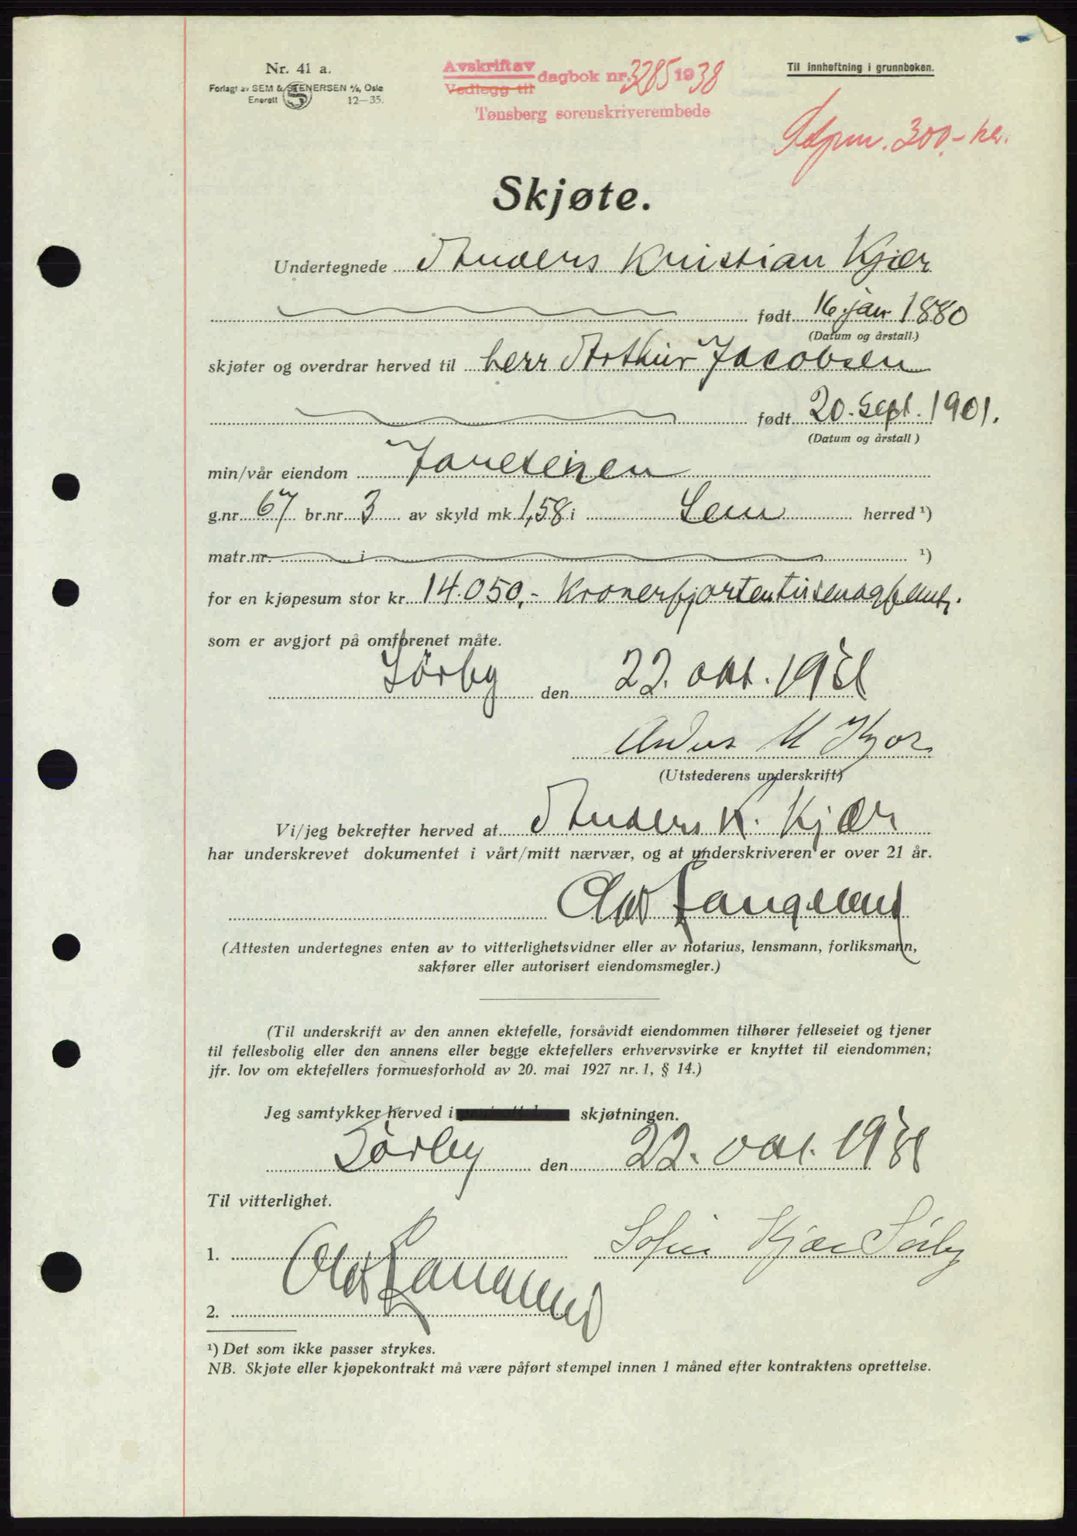 Nr. 41 a.
Forlagt av SEM & STENERSEN A/S, Oslo
Enerett 12—35.
Avskrift av
Vedlegg til dagbok nr. 3285 1938
Tønsberg sorenskriverembede
Til innheftning i grunnboken.
Stpm. 300,- kr.
Skjøte.
Undertegnede Anders Kristian Kjær
født 16. jan 1880
(Datum og årstall.)
skjøter og overdrar herved til herr Arthur Jacobsen
født 20. Sept. 1901.
(Datum og årstall )
min/vår eiendom
g.nr. 67 br.nr. 3 av skyld mk. 1,58 i Sem herred ¹)
matr.nr. i ¹)
for en kjøpesum stor kr. 14.050,- Kronerfjortentusenogfemti.
som er avgjort på omforenet måte.
Sørby den 22. okt. 1938
Anders K Kjær
(Utstederens underskrift)
Vi/jeg bekrefter herved at Anders K. Kjær
har underskrevet dokumentet i vårt/mitt nærvær, og at underskriveren er over 21 år.
Olav Langelund
(Attesten undertegnes enten av to vitterlighetsvidner eller av notarius, lensmann, forliksmann,
sakfører eller autorisert eiendomsmegler.)
(Til underskrift av den annen ektefelle, forsåvidt eiendommen tilhører felleseiet og tjener
til fellesbolig eller den annens eller begge ektefellers erhvervsvirke er knyttet til eiendommen;
jfr. lov om ektefellers formuesforhold av 20. mai 1927 nr. 1, § 14.)
Jeg samtykker herved i skjøtningen.
Sørby den 22. okt. 1938
Til vitterlighet.
1. Sofie Kjær Sørby
Olav Langelund
2.
¹) Det som ikke passer strykes.
NB. Skjøte eller kjøpekontrakt må være påført stempel innen 1 måned efter kontraktens oprettelse.